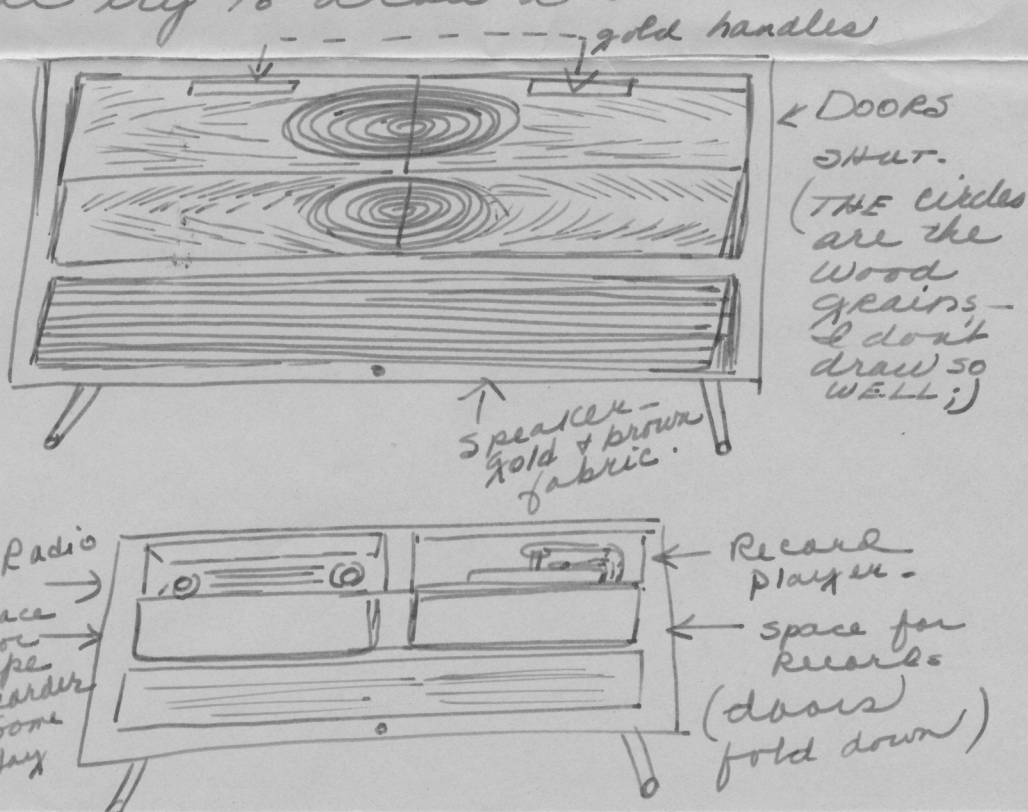 try to draw a
gold handles
DOORS
SHUT.
(THE circles
are the
wood
grains –
I don't
draw so
WELL ;)
Speaker –
gold & brown
fabric.
Radio
Record
player –
space for
Records
(doors
fold down)